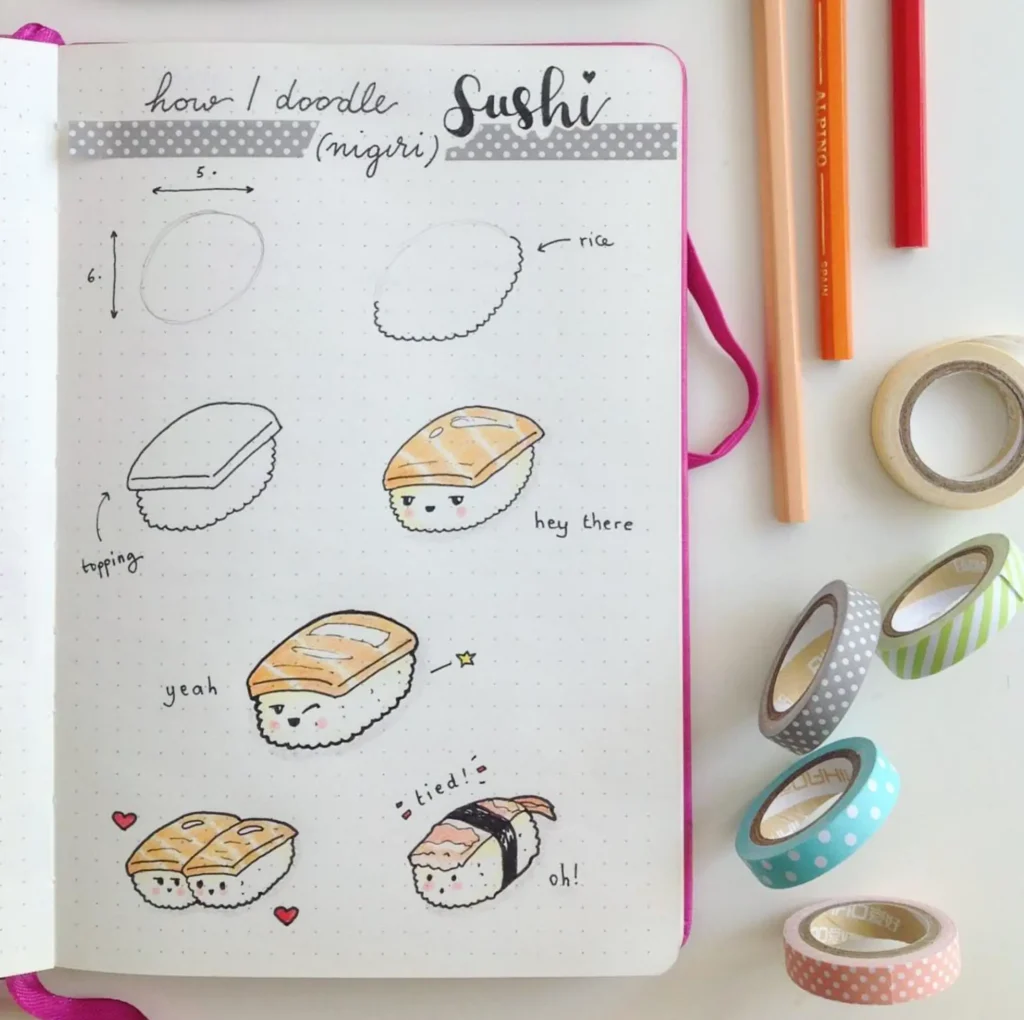 how I doodle Sushi
(nigiri)
5.
6.
rice
topping
hey there
yeah
tied!
oh!
ALPINO
SPAIN